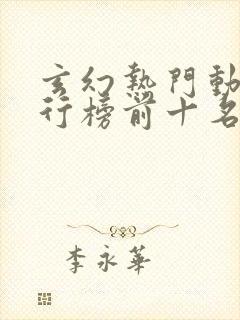 玄幻熱門動
行榜前十名
李永華